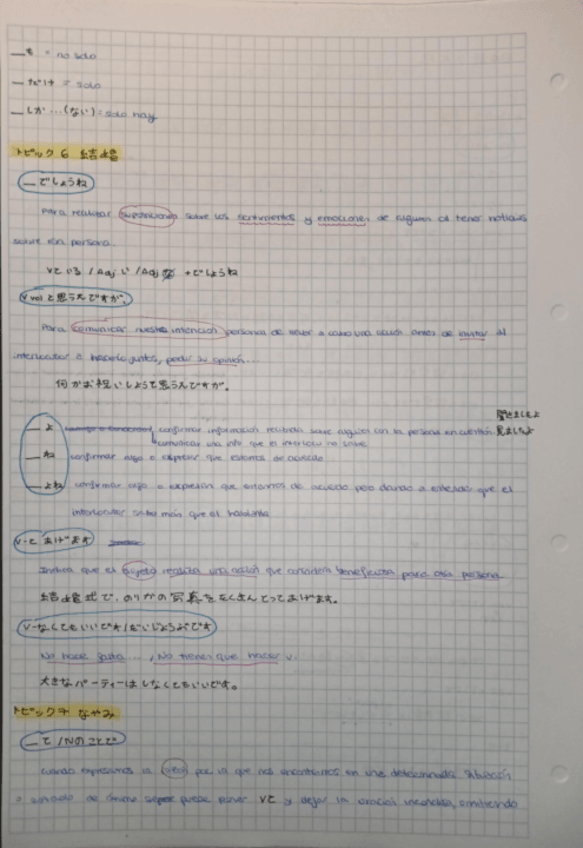 __も = no solo
__だけ = solo
__しか...(ない) = solo hay
トピック 6 結婚
__でしょうね
Para realizar suposiciones sobre los sentimientos y emociones de alguien al tener noticias
sobre esa persona.
Vている / Adj い / Adj な + でしょうね
V vol と思うんですが、
Para comunicar nuestra intención personal de llevar a cabo una acción antes de invitar al
interlocutor a hacerlo juntos, pedir su opinión...
何かお祝いしようと思うんですが。
__よ confirmar información recibida sobre alguien con la persona en cuestión. 聞きましたよ 見ましたよ
comunicar una info que el interlocu no sabe
__ね confirmar algo o expresar que estamos de acuerdo
__よね confirmar algo o expresar que estamos de acuerdo pero dando a entender que el
interlocutor sabe más que el hablante
V-て あげます
Indica que el sujeto realiza una acción que considera beneficiosa para otra persona
結婚式で、のりかの写真をたくさんとってあげます。
V-なくてもいいです/だいじょうぶです
No hace falta..., No tienes que hacer V.
大きなパーティーはしなくてもいいです。
トピック 7 なやみ
__て / Nのことで
Cuando expresamos la por la que nos encontramos en una determinada situación
o estado de ánimo se puede poner Vて y dejar la oración inconclusa, omitiendo